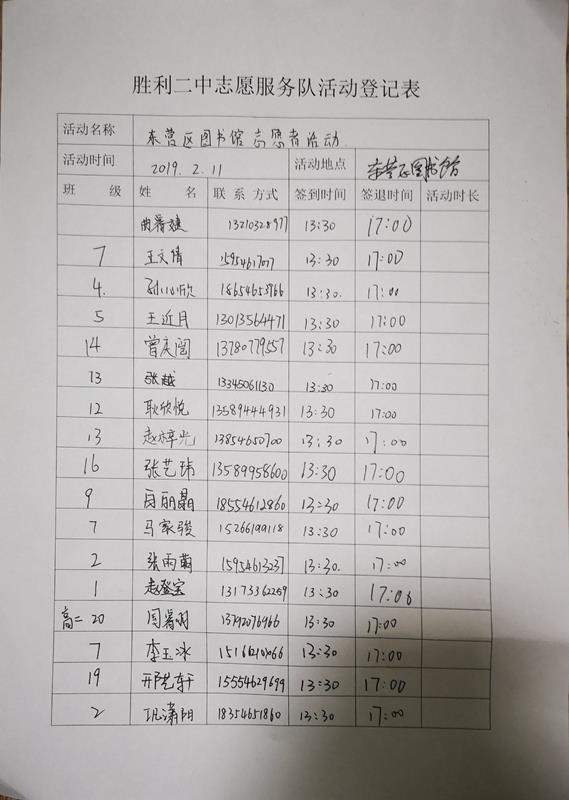 胜利二中志愿服务队活动登记表
活动名称 东营区图书馆志愿者活动
活动时间 2019.2.11 活动地点 东营区图书馆
班 级 姓 名 联系方式 签到时间 签退时间 活动时长
13210328977 13:30 17:00
7 王文倩 13:30 17:00
4. 孙心欣 18654653766 13:30. 17:00
5 王近月 13013564471 13:30 17:00
14 曾庆阁 13780779557 13:30 17:00
13 张越 13345061130 13:30 17:00
12 耿欣悦 13589444931 13:30 17:00
13 赵梓光 13854650700 13:30 17:00
16 张艺玮 13589958600 13:30 17:00
9 白丽晶 18554612860 13:30 17:00
7 马家骏 15266199118 13:30 17:00
2 张雨菊 15954613237 13:30. 17:00
1 赵登宝 13173362259 13:30 17:00
高二20 周暑羽 13792076966 13:30 17:00
7 李玉冰 13:30 17:00
19 邢艺轩 15554629699 13:30 17:00
2 巩潇阳 18354651860 13:30 17:00